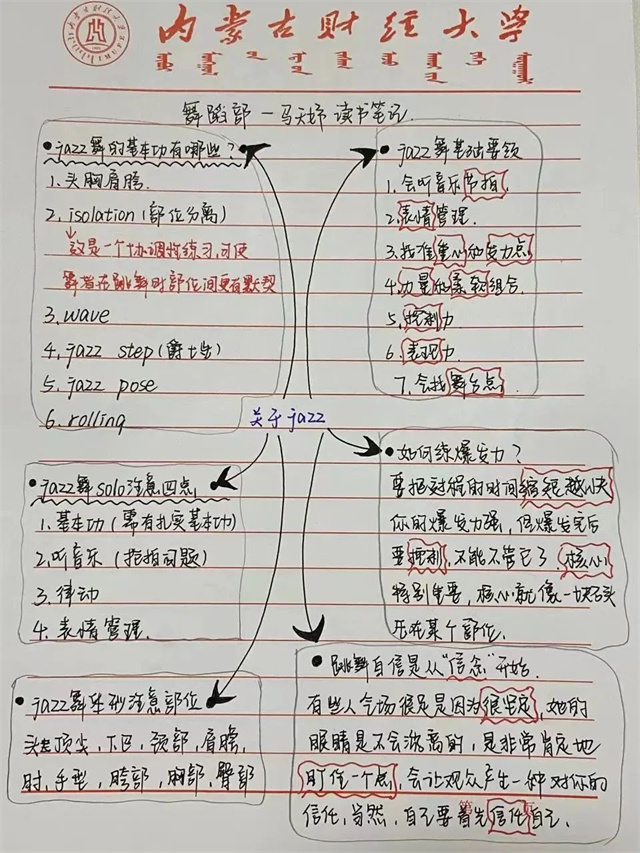 内蒙古财经大学
舞蹈部—马天婷 读书笔记.
jazz舞的基本功有哪些?
1.头胸肩胯.
2.isolation(部位分离)
这是一个协调性练习,可使
舞者在跳舞时部位间更有默契
3.wave
4.jazz step(爵士步)
5.jazz pose
6.rolling
jazz舞基础要领
1.会听音乐节拍
2.表情管理.
3.找准重心和发力点
4.力量和柔软组合.
5.控制力
6.表现力.
7.会找舞台点.
关于jazz
jazz舞solo注意四点
1.基本功(需有扎实基本功)
2.听音乐(抢拍问题)
3.律动
4.表情管理.
如何练爆发力?
要把过程的时间缩短越快
你的爆发力强,但爆发完后
要控制,不能不管它了.核心
特别重要,核心就像一块石头
压在某个部位.
jazz舞车型注意部位
头顶,下巴,颈部,肩膀,
肘,手型,胯部,胸部,臀部
跳舞自信是从"信念"开始.
有些人气场很足是因为很坚定,她的
眼睛是不会游离的,是非常肯定地
盯住一个点,会让观众产生一种对你的
信任,当然,自己要首先信任自己.